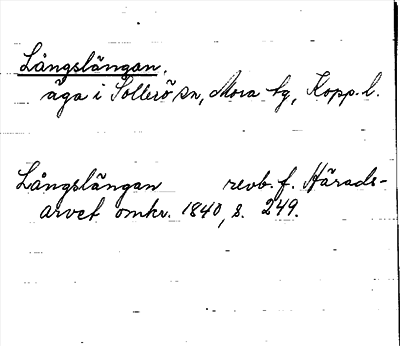 Långslängan,
äga i Sollerö sn, Mora tg, Kopp. l.
Långslängan revb. f. Härads-
arvet omkr. 1840, s. 249.